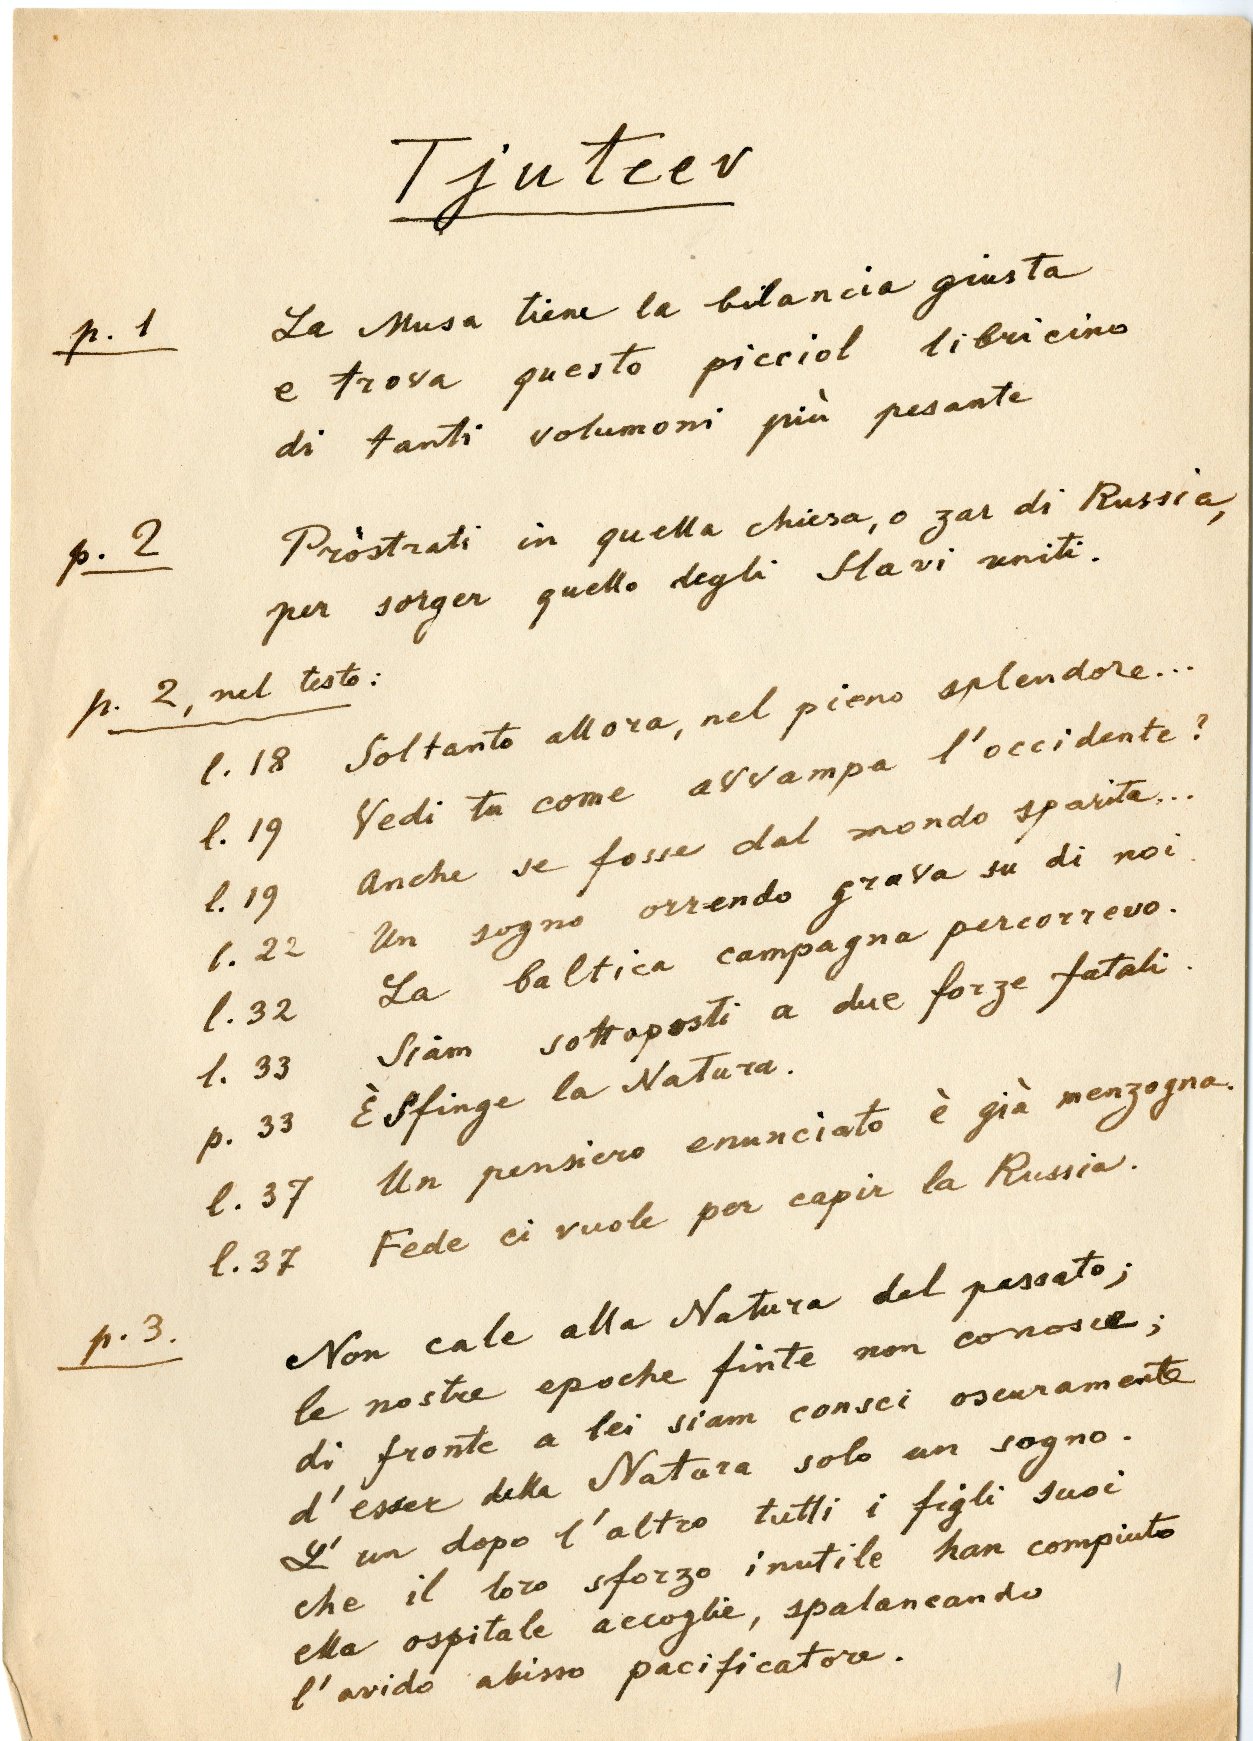 Tjutcev
p. 1 La Musa tiene la bilancia giusta
e trova questo picciol libricino
di tanti volumoni più pesante
p. 2 Pròstrati in quella chiesa, o zar di Russia,
per sorger quello degli Slavi uniti.
p. 2, nel testo:
l. 18 Soltanto allora, nel pieno splendore...
l. 19 Vedi tu come avvampa l'occidente?
l. 19 Anche se fosse dal mondo sparita...
l. 22 Un sogno orrendo grava su di noi.
l. 32 La baltica campagna percorrevo.
l. 33 Siam sottoposti a due forze fatali.
p. 33 È Sfinge la Natura.
l. 37 Un pensiero enunciato è già menzogna.
l. 37 Fede ci vuole per capir la Russia.
p. 3. Non cale alla Natura del passato;
le nostre epoche finte non conosce;
di fronte a lei siam consci oscuramente
d'esser della Natura solo un sogno.
L'un dopo l'altro tutti i figli suoi
che il loro sforzo inutile han compiuto
ella ospitale accoglie, spalancando
l'avido abisso pacificatore.